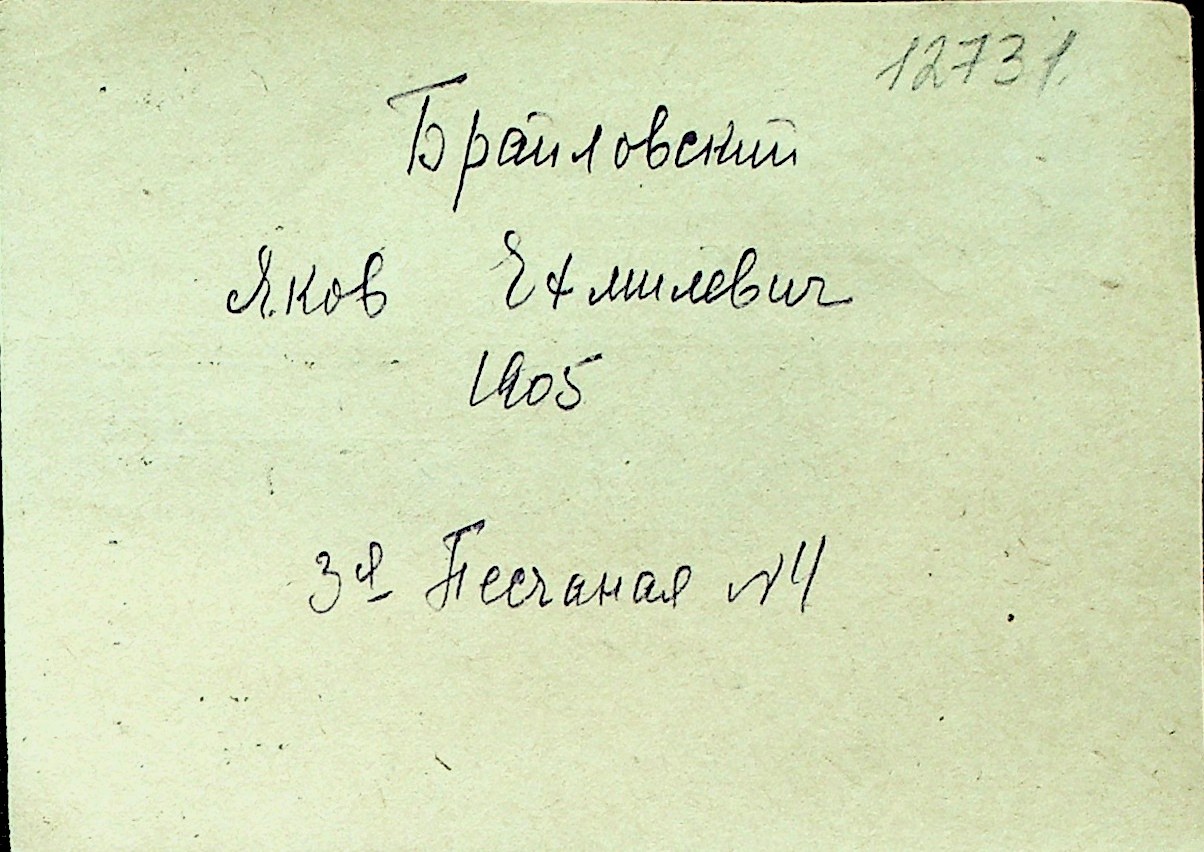 12731
Браиловский
Яков Ехмилевич
1905
3я Песчаная N 4